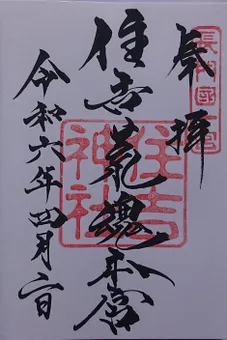 長門國一宮
奉拝
住吉荒魂本宮
住吉
神社
令和六年四月二日